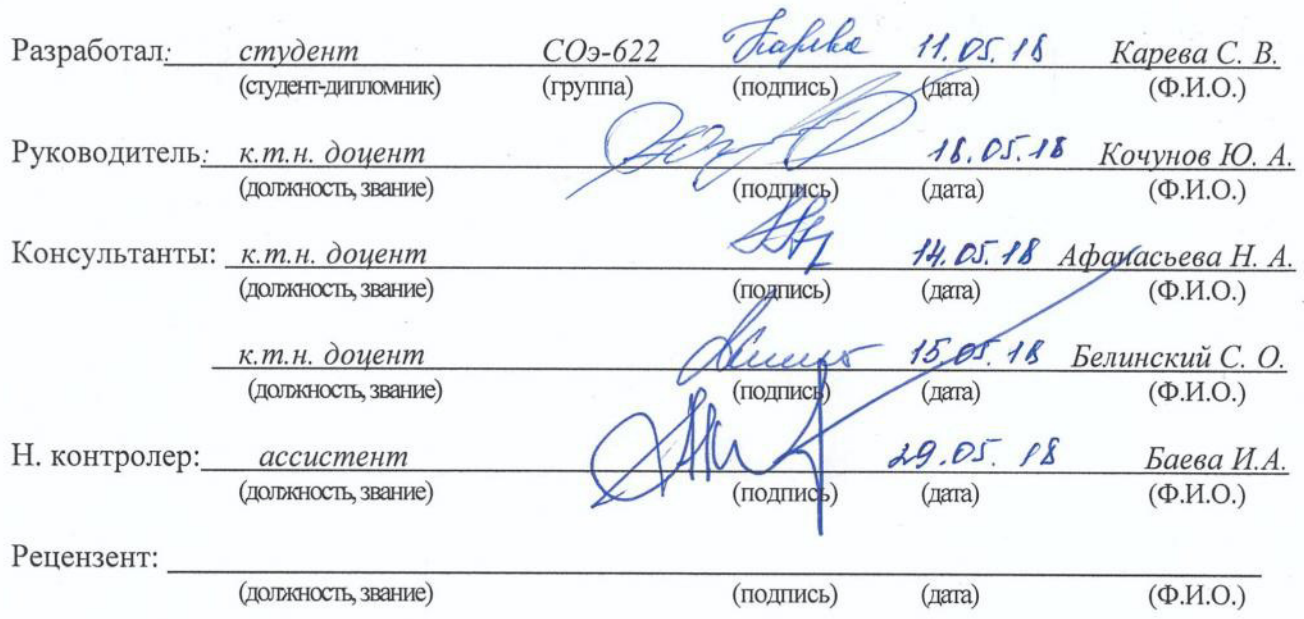 Разработал: студент СОэ-622 11.05.18 Карева С. В.
(студент-дипломник) (группа) (подпись) (дата) (Ф.И.О.)
Руководитель: к.т.н. доцент 18.05.18 Кочунов Ю. А.
(должность, звание) (подпись) (дата) (Ф.И.О.)
Консультанты: к.т.н. доцент 14.05.18 Афанасьева Н. А.
(должность, звание) (подпись) (дата) (Ф.И.О.)
к.т.н. доцент 15.05.18 Белинский С. О.
(должность, звание) (подпись) (дата) (Ф.И.О.)
Н. контролер: ассистент 29.05.18 Баева И.А.
(должность, звание) (подпись) (дата) (Ф.И.О.)
Рецензент:
(должность, звание) (подпись) (дата) (Ф.И.О.)